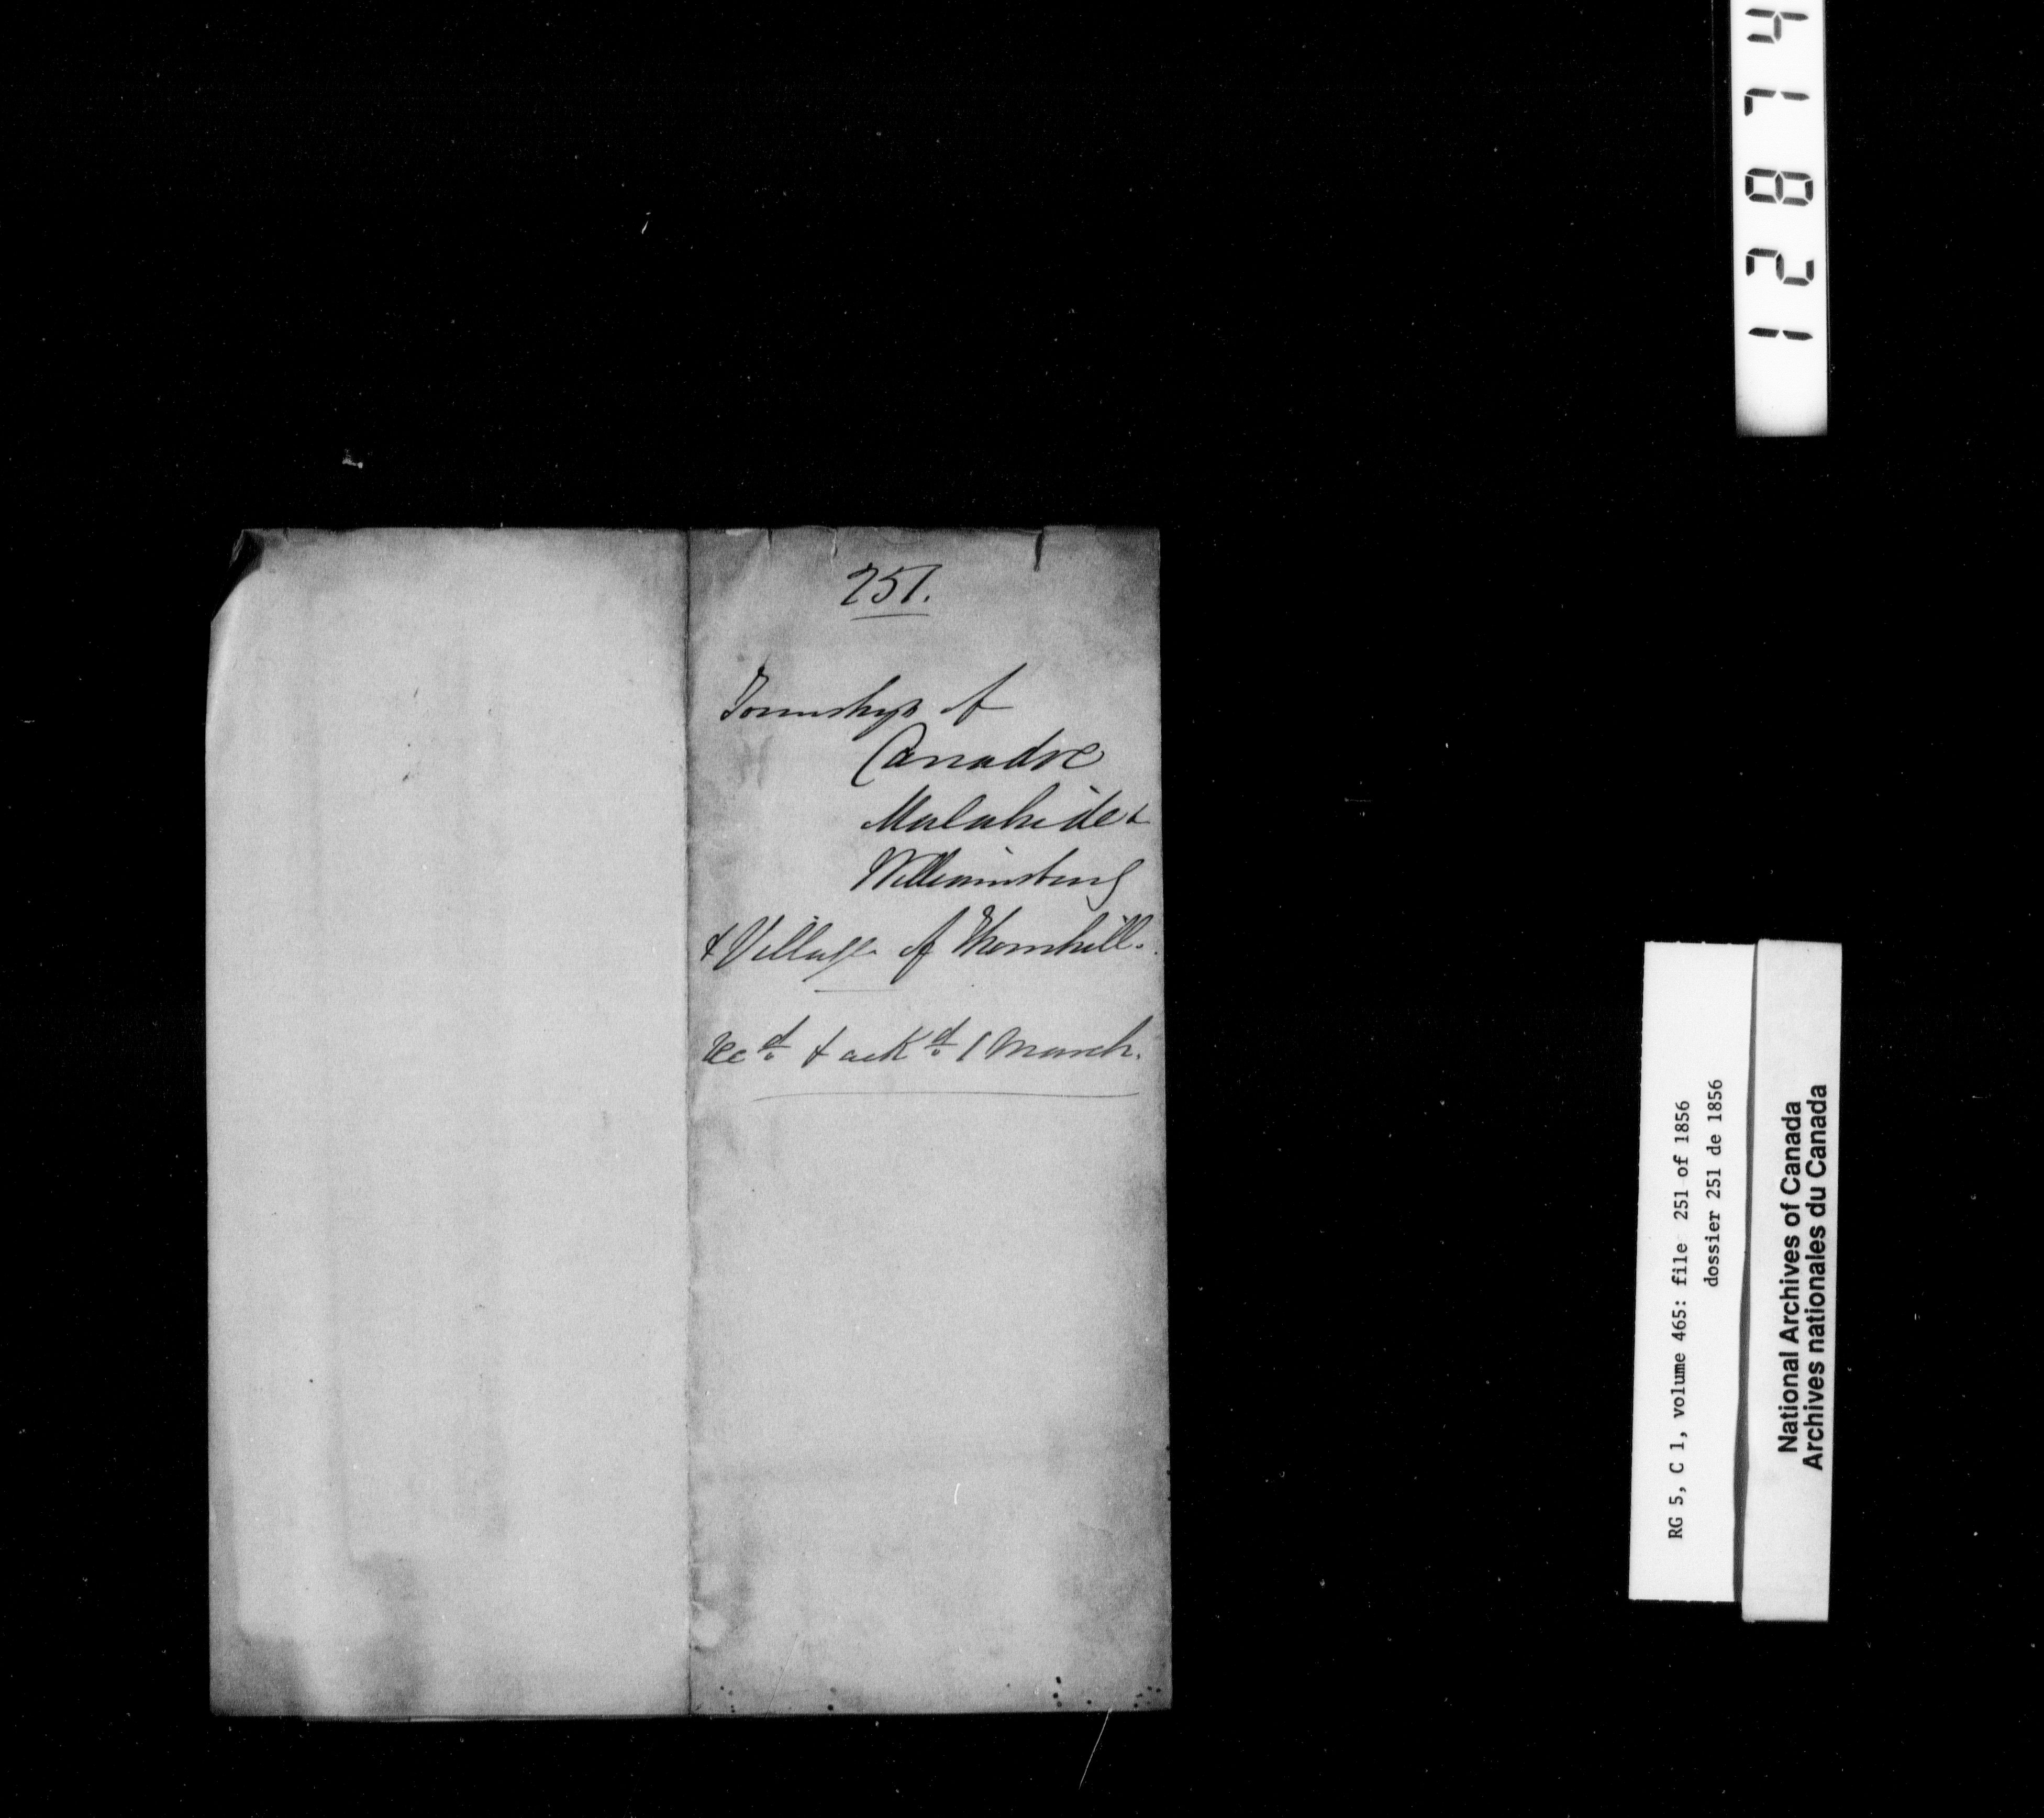 251.
Townships of
Canadoe
Malahide &
Williamsburg
& Village of Thornhill.
Recd. & ackd. 1 March.
RG 5, C 1, volume 465: file 251 of 1856
dossier 251 de 1856
National Archives of Canada
Archives nationales du Canada
12874